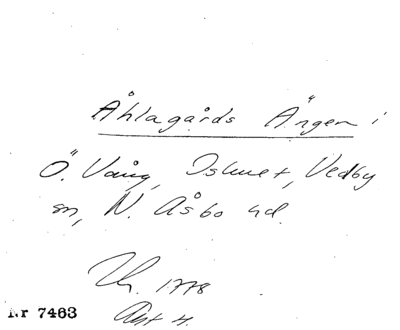 Åhlagårds Ängen i
Ö. Vång, Vedby
sn, N. Åsbo hd.
1778
Nr 7463 Akt 4.